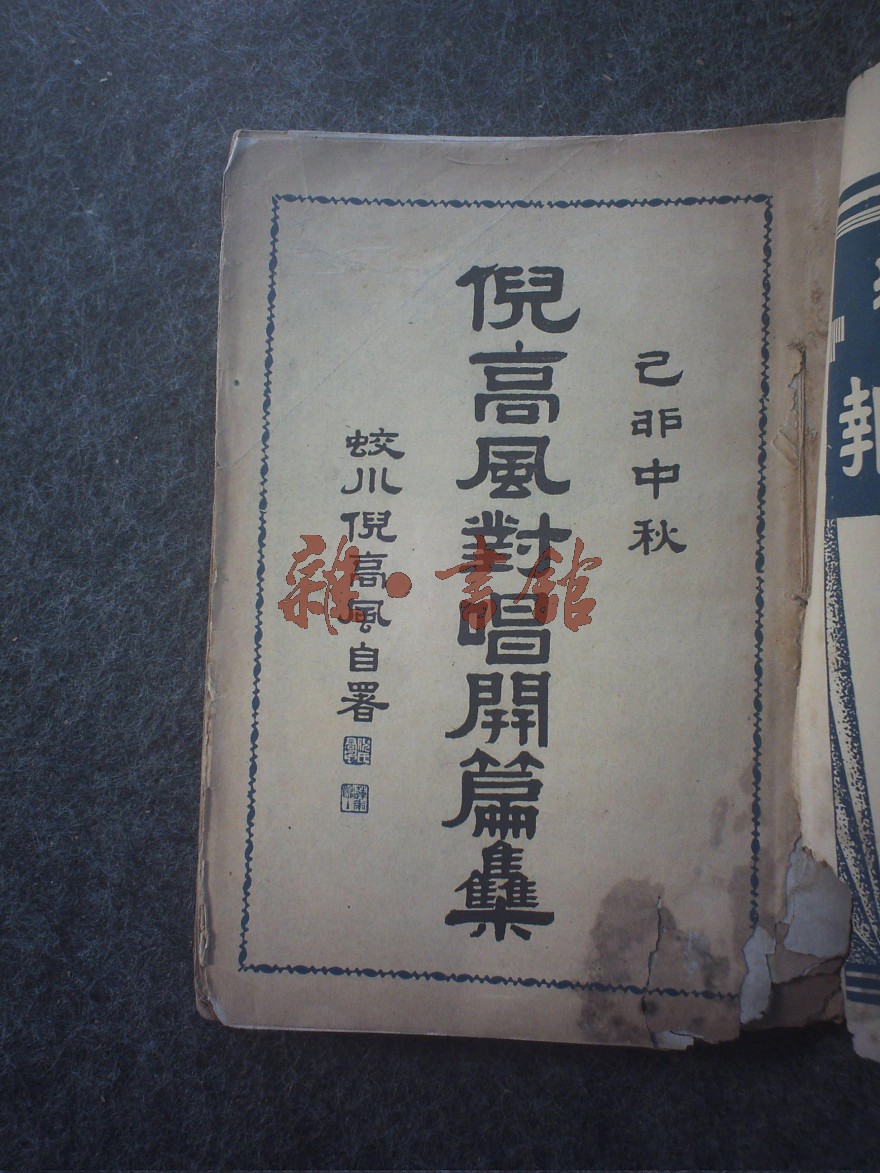 己卯中秋
倪高風對唱開篇集
蛟川倪高風自署
雜·書館
報